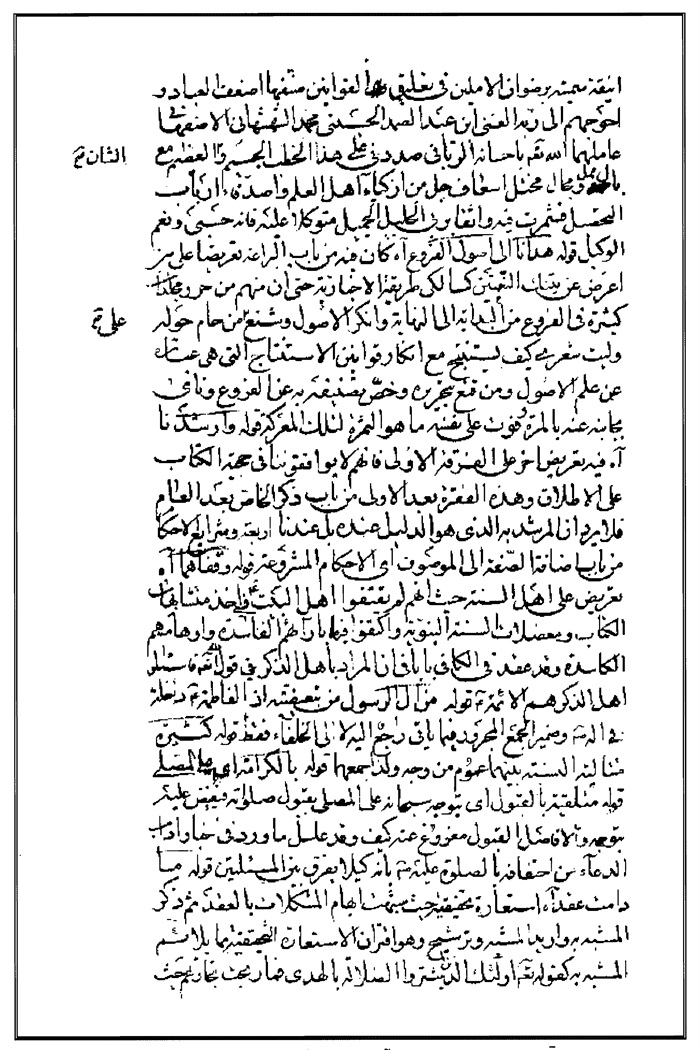 انيقة ميمنة برضوان الاملين في تعليق القوانين صنفها اضعف العباد و
احوجهم الى ربه الغني ابن عبد الصمد الحسيني محمد الشهشهاني الاصفهاني
عاملهما الله تعالى باحسانه الرباني صددني على هذا الخطب الجسيم والعظيم مع
الثاني
بال ومجال مختل اسعاف جل من ازكياء اهل العلم واصدقاء ارباب
التحصيل فشمرت فيه واثقا برب الجليل الجميل متوكلا عليه فانه حسبي ونعم
الوكيل قوله هدانا الى اصول الفروع اه كان فيه من باب البراعة تعريضا على من
اعرض عن كسالكي طريقة الاخبارية حتى ان منهم من حرر مجلدات
كثيرة في الفروع من البداية الى النهاية وانكر الاصول وشنع من حام حوله
على
وليت شعري كيف يستنتج مع انكار قوانين الاستنتاج التي هي عبارة
عن علم الاصول ومن قنع بتحريره وخص تصنيفه به عن الفروع ونافى
بجانبه عنه بالمرة وفوت على نفسه ما هو الثمرة لتلك المعركة قوله وارشدنا
اه فيه تعريض اخر على الفرقة الاولى فانهم لا يوافقوننا في حجية الكتاب
على الاطلاق وهذه الفقرة بعد الاولى من باب ذكر الخاص بعد العام
فلا يرد ان المرشد به الذي هو الدليل عنده بل عندنا اربعة وشرايع الاحكام
من باب اضافة الصفة الى الموصوف اي الاحكام المشروعة قوله وقفاهما اه
تعريض على اهل السنة حيث انهم لم يقتفوا اهل البيت واخذ متشابهات
الكتاب ومعضلات السنة النبوية واكتفوا فيها بارائهم الفاسدة واوهامهم
الكاسدة وقد عقد في الكافي بابا في ان المراد باهل الذكر في قوله تعالى فاسئلوا
اهل الذكر هم الائمة قوله من ال الرسول من تبعيضية اذ الفاطمة داخلة
في اله وضمير الجمع المجرور فيما ياتي راجع اليه لا الى الخلفاء فقط قوله كثيرة
متتالية النسبة بينهما عموم من وجه ولذا جمعهما قوله بالكرامة اي على المصلي
قوله متلقية بالقبول اي يتوجه سبحانه على المصلي بقبول صلواته فيفيض عليه
بتوجه والا فاصل القبول مفروغ عنه كيف وقد علل ما ورد في اداب
الدعاء من احتفافه بالصلوة عليه بانه كيلا يفرق بين المسئلتين قوله ما
دامت عقد اه استعارة تحقيقية حيث شبهت ابهام المشكلات بالعقد ثم ذكر
المشبه به واريد المشبه وترشيح وهو اقتران الاستعارة التحقيقية بما يلائم
المشبه به كقوله تعالى اولئك الذين اشتروا الضلالة بالهدى فما ربحت تجارتهم حيث